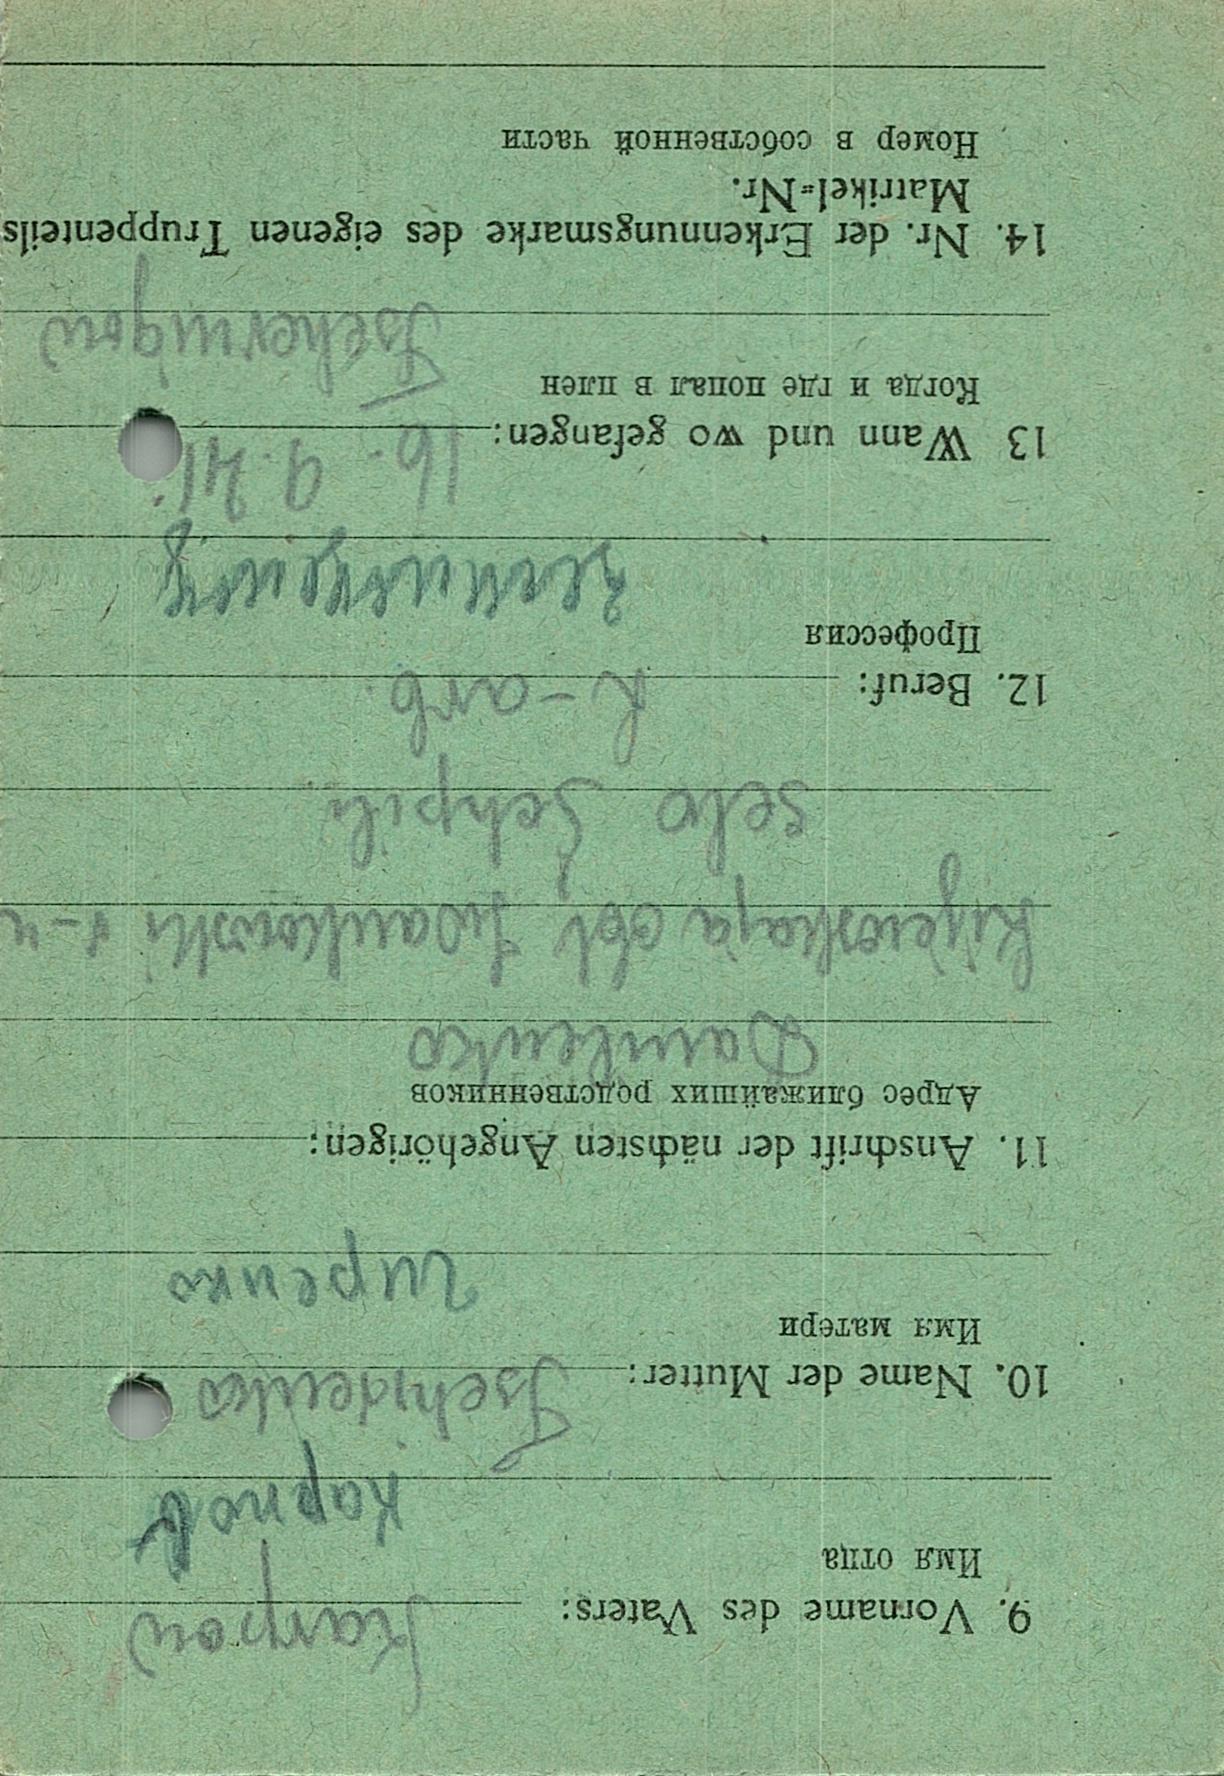 9. Vorname des Vaters: Karpow
Имя отца
Карпов
10. Name der Mutter: Tschidenko
Имя матери
11. Anschrift der nächsten Angehörigen:
Адрес ближайших родственников
Danilenko
Kijewskaja obl. Iwankowski r-n
selo Schpili
12. Beruf: L-arb.
Профессия
13 Wann und wo gefangen: 16. 9. 41.
Когда и где попал в плен
Tschernigow
14. Nr. der Erkennungsmarke des eigenen Truppenteils
Matrikel=Nr.
Номер в собственной части